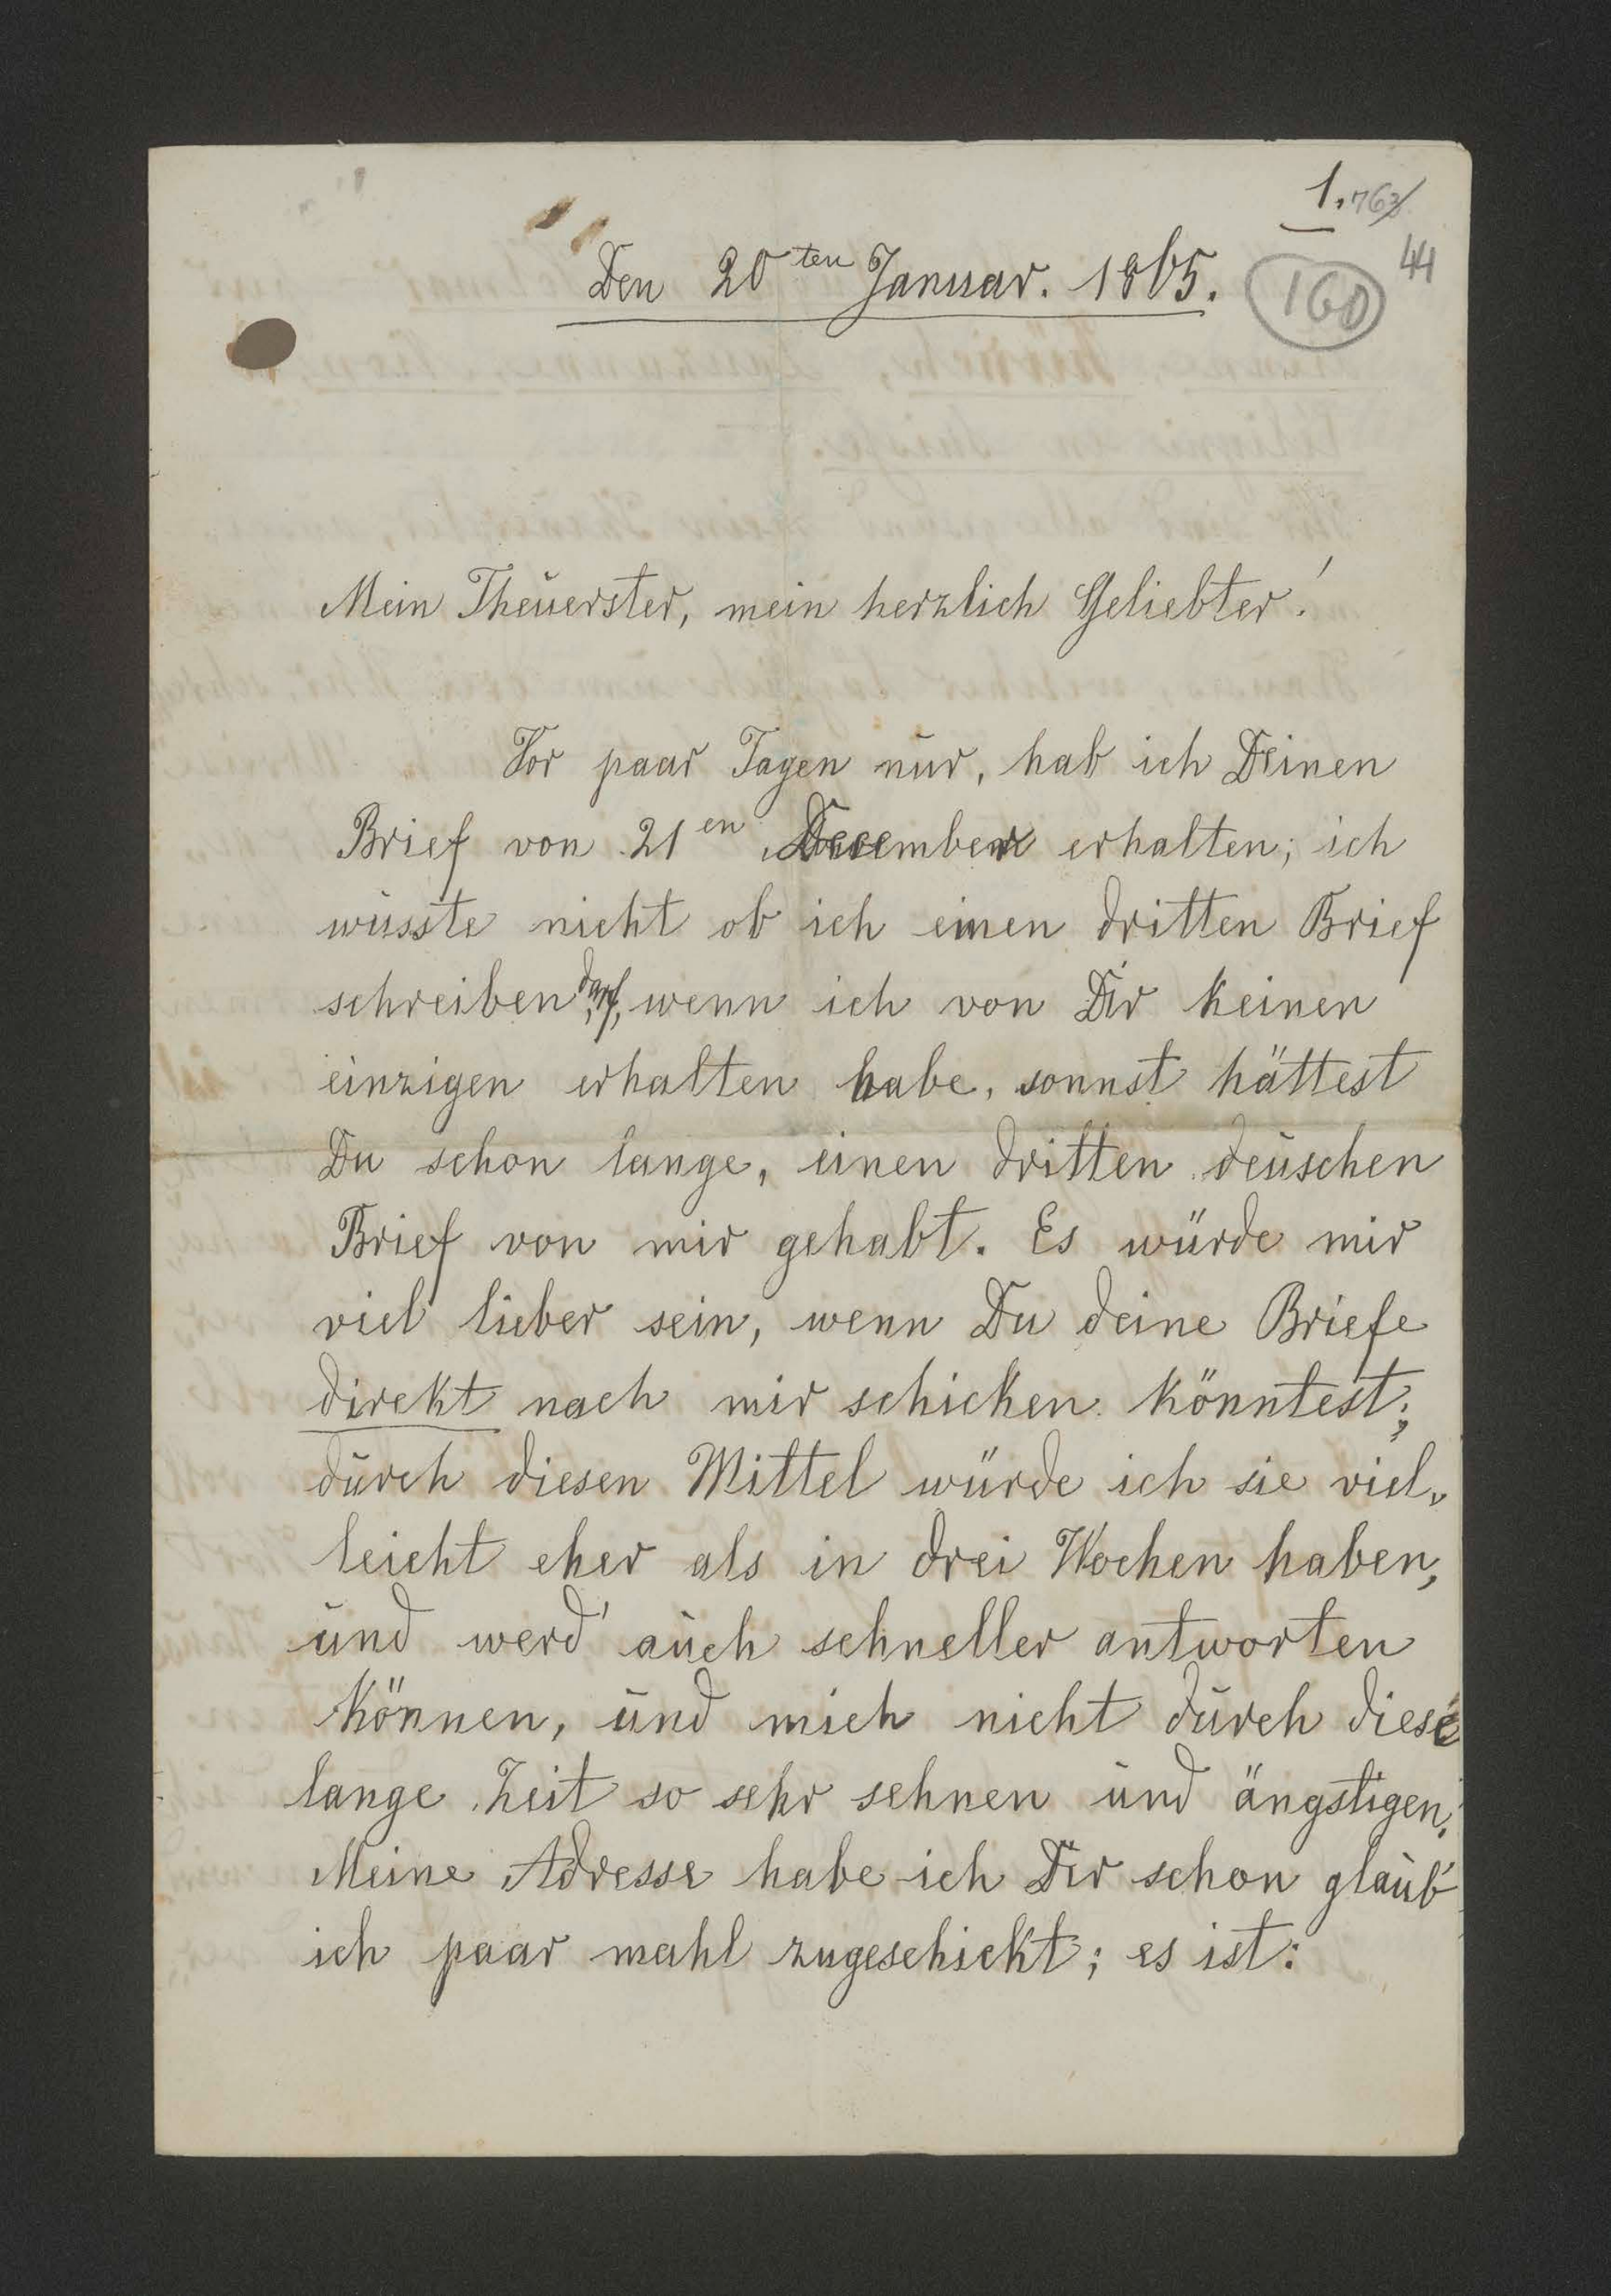 1. 763
44
Den 20ten Januar. 1865.
160
Mein Theuerster, mein herzlich Geliebter!
Vor paar Tagen nur, hab ich Deinen
Brief von 21en December erhalten; ich
wusste nicht ob ich einen dritten Brief
schreiben darf, wenn ich von Dir keinen
einzigen erhalten habe, sonnst hättest
Du schon lange, einen dritten deuschen
Brief von mir gehabt. Es würde mir
viel lieber sein, wenn Du deine Briefe
direkt nach mir schicken könntest;
durch diesen Mittel würde ich sie viel-
leicht eher als in drei Wochen haben,
und werd' auch schneller antworten
können, und mich nicht durch diese
lange Zeit so sehr sehnen und ängstigen.
Meine Adresse habe ich Dir schon glaub'
ich paar mahl zugeschickt; es ist: